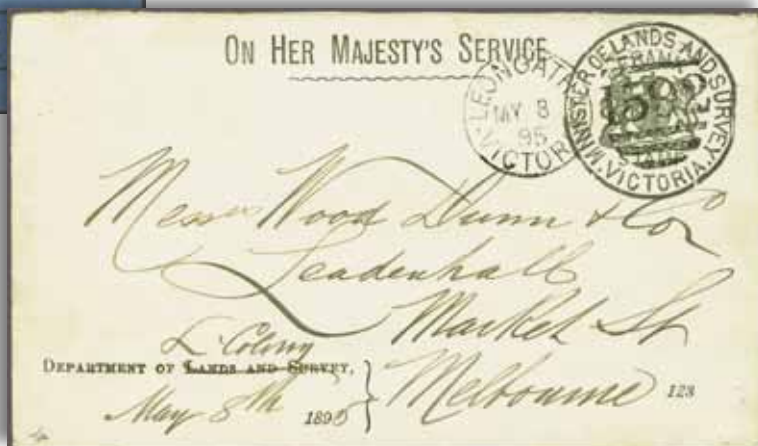 ON HER MAJESTY'S SERVICE
LEONGATHA
MY 8
95
VICTOR
MINISTER OF LANDS AND SURVEY. VICTORIA.
FRANK
STAMP
Messrs Wood Dunn & Co
Leadenhall
Market St
Melbourne
L. Colony
DEPARTMENT OF LANDS AND SURVEY,
May 8th 1895
123